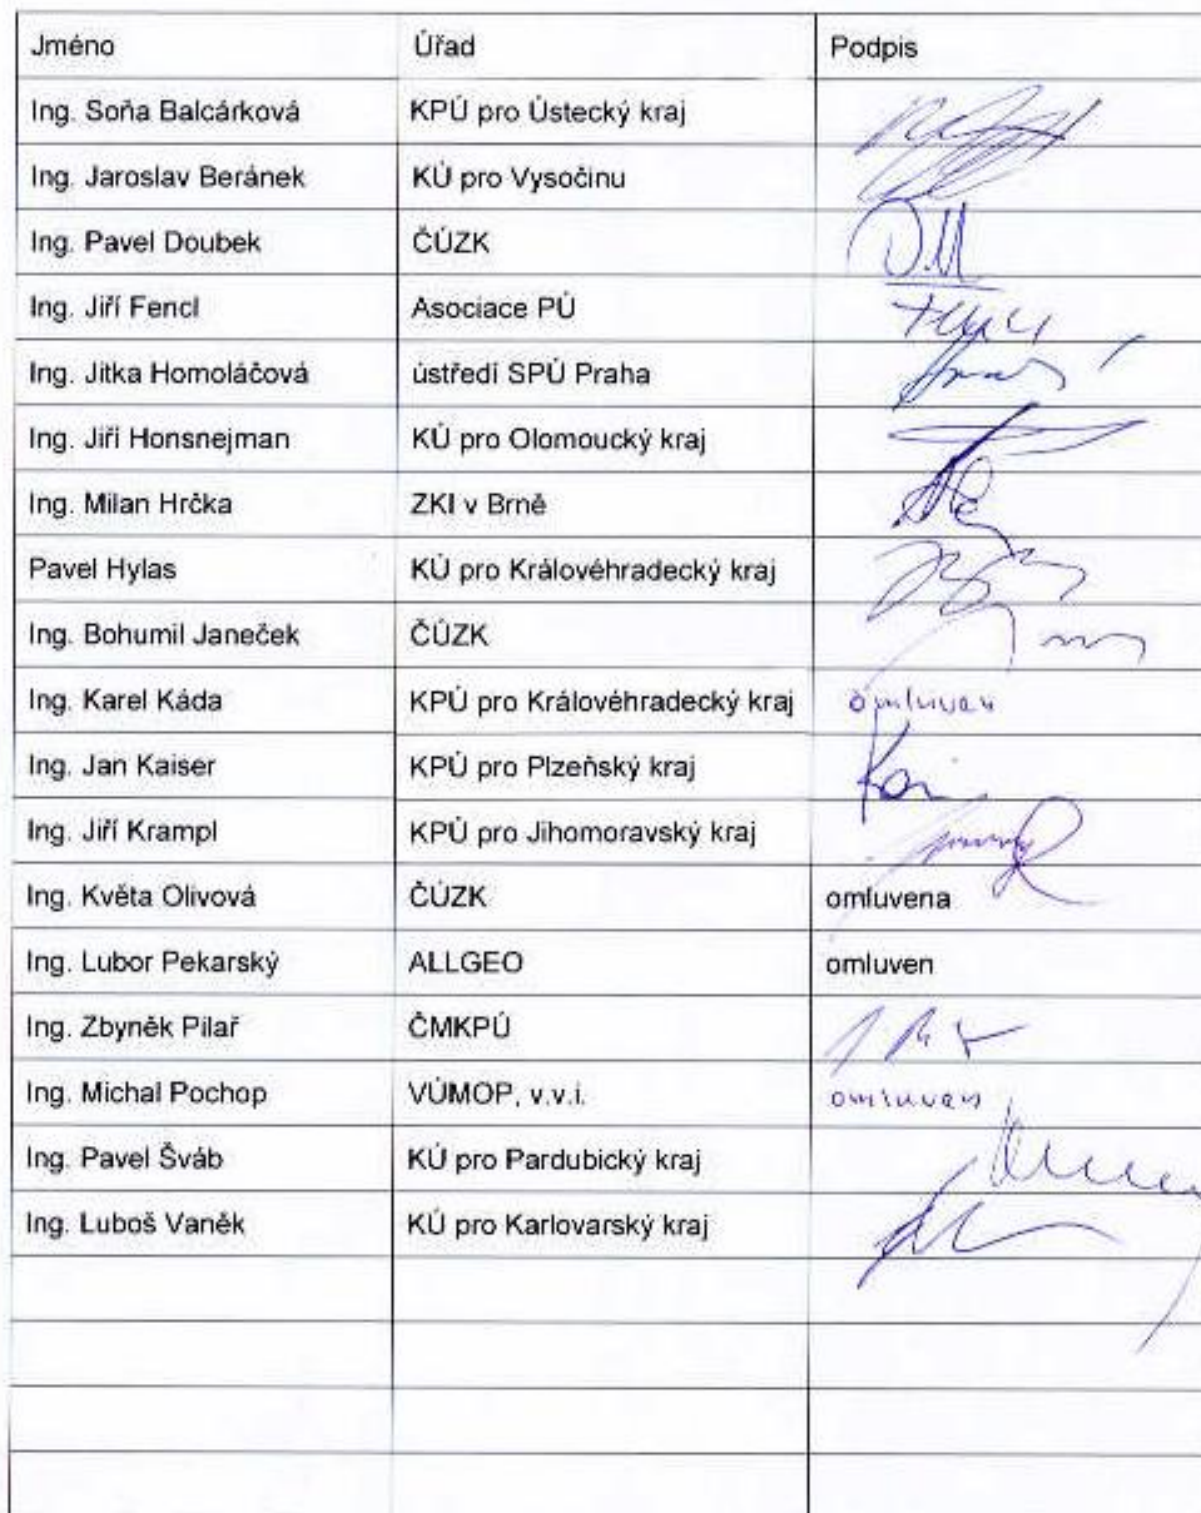 Jméno Úřad Podpis
Ing. Soňa Balcárková KPÚ pro Ústecký kraj
Ing. Jaroslav Beránek KÚ pro Vysočinu
Ing. Pavel Doubek ČÚZK
Ing. Jiří Fencl Asociace PÚ
Ing. Jitka Homoláčová ústředí SPÚ Praha
Ing. Jiří Honsnejman KÚ pro Olomoucký kraj
Ing. Milan Hrčka ZKI v Brně
Pavel Hylas KÚ pro Královéhradecký kraj
Ing. Bohumil Janeček ČÚZK
Ing. Karel Káda KPÚ pro Královéhradecký kraj omluven
Ing. Jan Kaiser KPÚ pro Plzeňský kraj
Ing. Jiří Krampl KPÚ pro Jihomoravský kraj
Ing. Květa Olivová ČÚZK omluvena
Ing. Lubor Pekarský ALLGEO omluven
Ing. Zbyněk Pilař ČMKPÚ
Ing. Michal Pochop VÚMOP, v.v.i. omluven
Ing. Pavel Šváb KÚ pro Pardubický kraj
Ing. Luboš Vaněk KÚ pro Karlovarský kraj